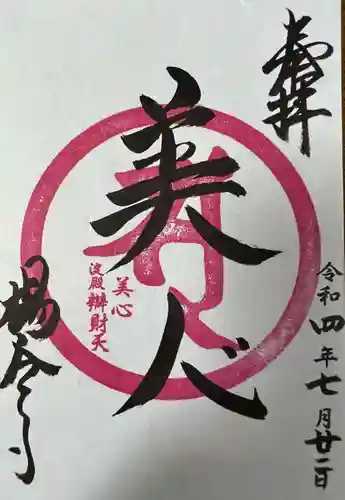 奉拝
令和四年七月廿二日
美人
美心
淀殿辨財天
楊谷寺